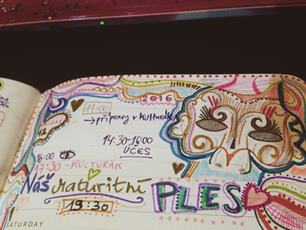 2016
11:00
→ přípravy v Kulturáku
14:30-16:00
ÚČES
16:00
17:30 - KULTURÁK
Náš maturitní PLES
19:30
SATURDAY